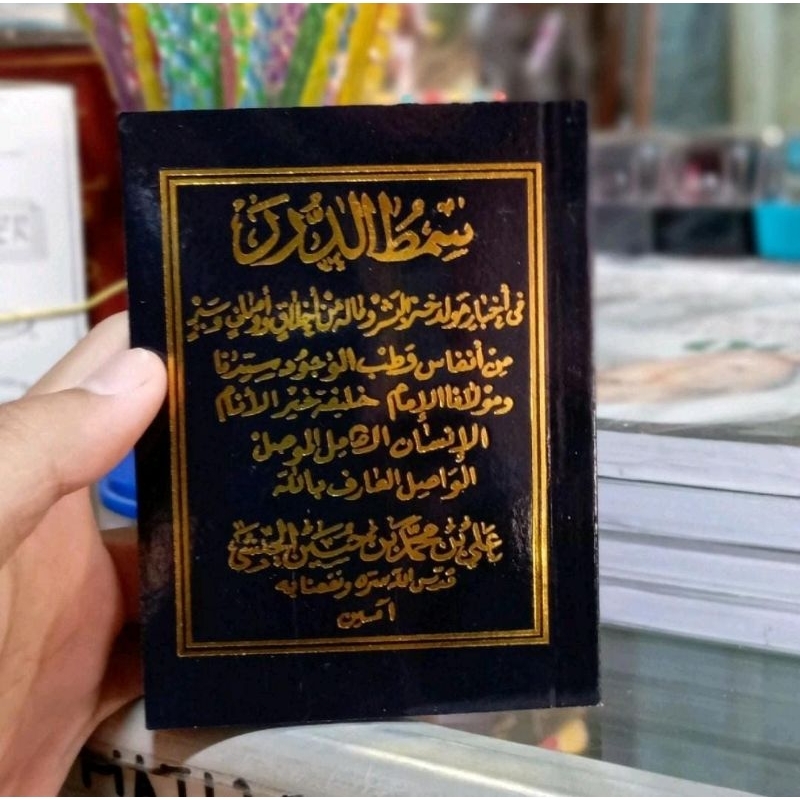 سمط الدرر
في أخبار مولد خير البشر وماله من أخلاق وأوصاف وسير
من أنفاس قطب الوجود سيدنا
ومولانا الإمام خليفة خير الأنام
الإنسان الكامل الموصل
الواصل العارف بالله
علي بن محمد بن حسين الحبشي
قدس الله سره ونفعنا به
امين